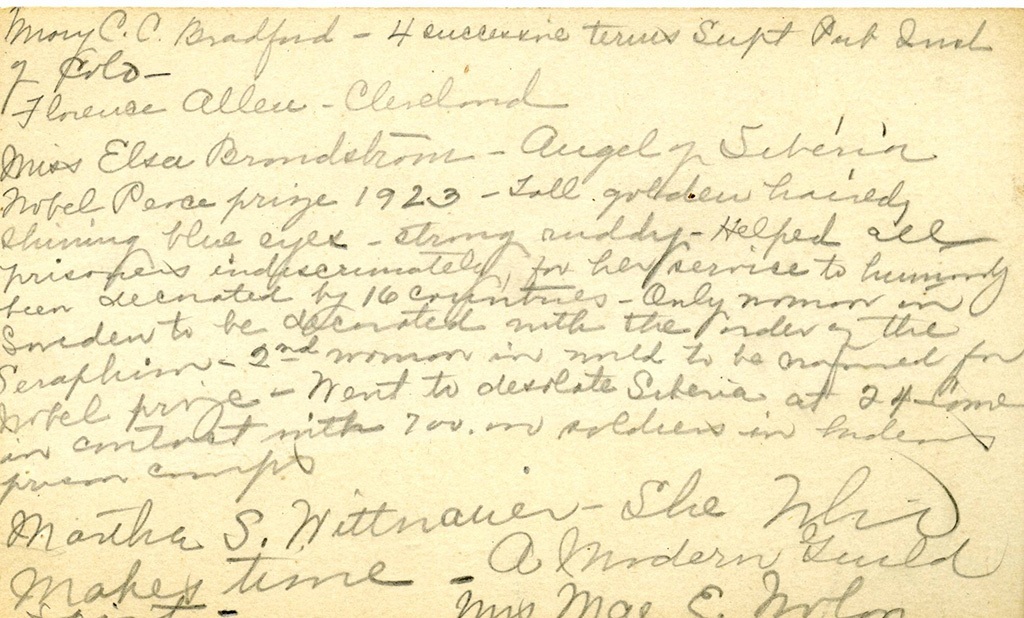 Mary C. C. Bradford - 4 successive terms Supt Pub Inst
of Colo-
Florence Allen - Cleveland
Miss Elsa Brandström - Angel of Siberia
Nobel Peace prize 1923 - Tall golden haired,
shining blue eyes - strong ruddy - Helped all
prisoners indiscrimately, for her service to humanity
been decorated by 16 countries - Only woman in
Sweden to be decorated with the order of the
Seraphim - 2nd woman in world to be named for
Nobel prize - Went to desolate Siberia at 24 - Came
in contact with 700.000 soldiers in hideous
prison camps
Martha S. Wittnauer - She Who
Makes time - A Modern Guild
Mrs Mae E. Nolan